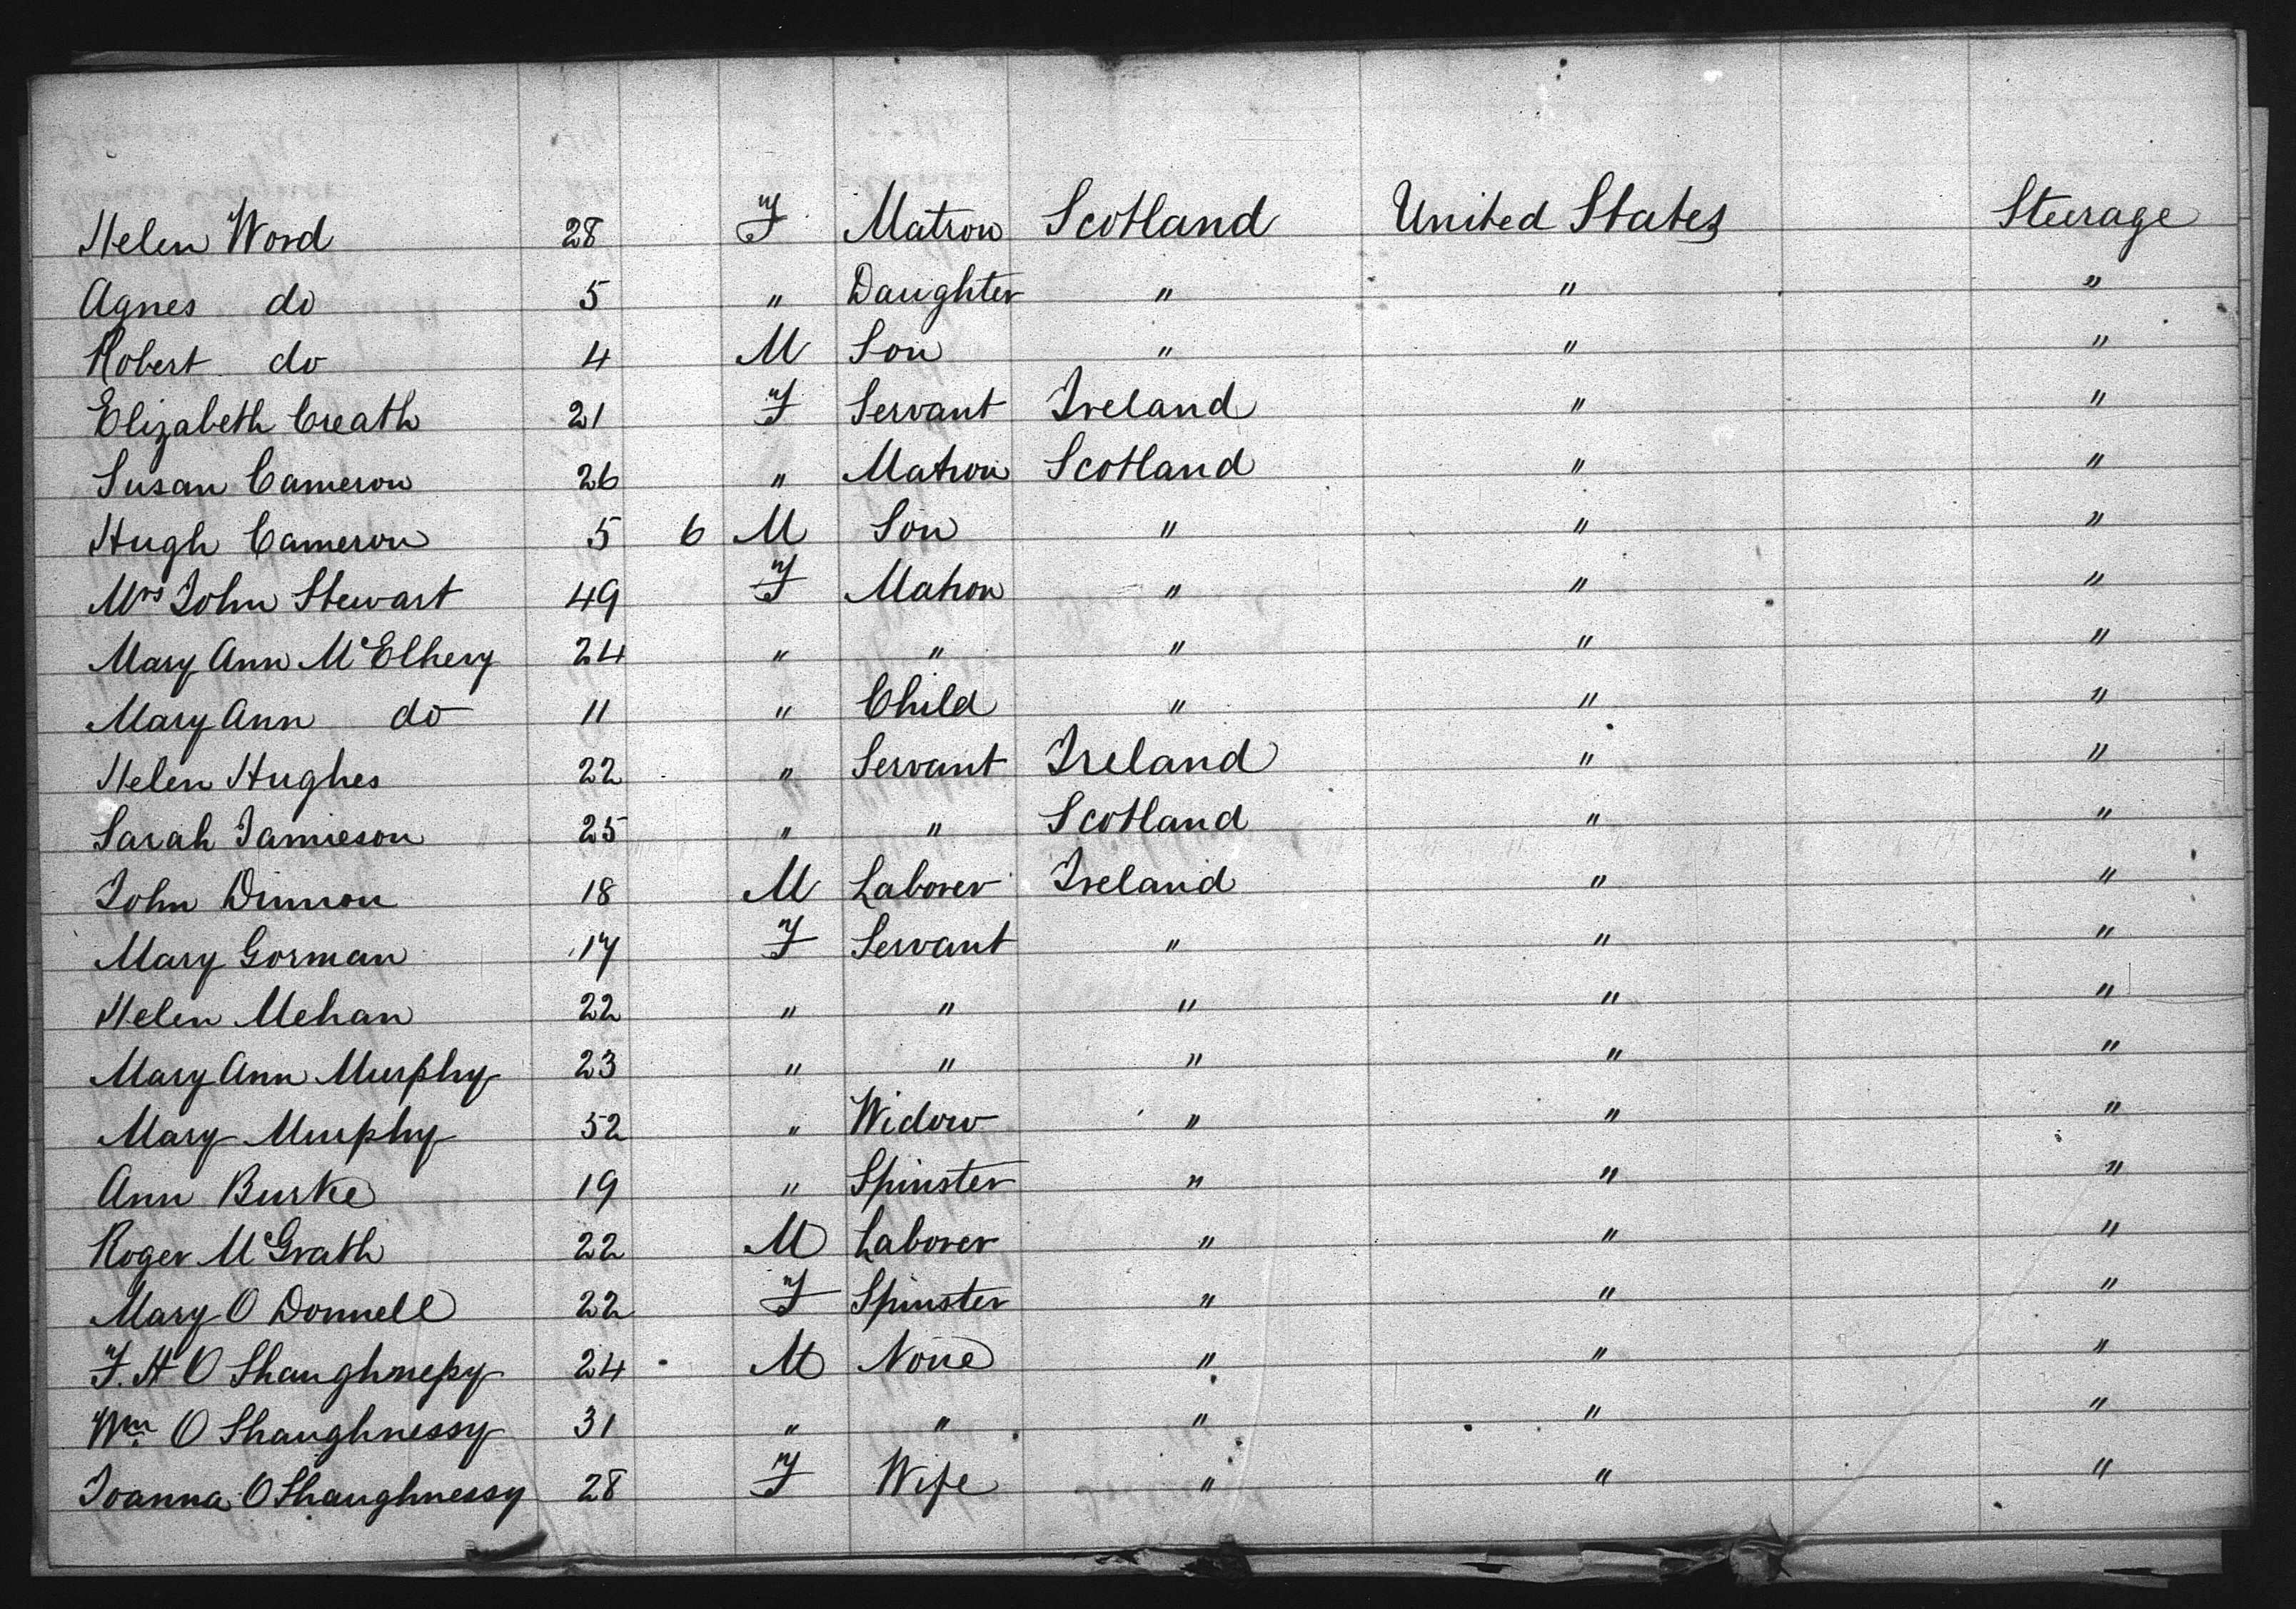 Helen Word 28 F Matron Scotland United States Steerage
Agnes do 5 " Daughter " " "
Robert do 4 M Son " " "
Elizabeth Creath 21 F Servant Ireland " "
Susan Cameron 26 " Matron Scotland " "
Hugh Cameron 5 6 M Son " " "
Mrs John Stewart 49 F Matron " " "
Mary Ann McElhery 24 " " " " "
Mary Ann do 11 " Child " " "
Helen Hughes 22 " Servant Ireland " "
Sarah Jamieson 25 " " Scotland " "
John Dinnon 18 M Laborer Ireland " "
Mary Gorman 17 F Servant " " "
Helen Mehan 22 " " " " "
Mary Ann Murphy 23 " " " " "
Mary Murphy 52 " Widow " " "
Ann Burke 19 " Spinster " " "
Roger McGrath 22 M Laborer " " "
Mary O Donnell 22 F Spinster " " "
F. H O Shaughnessy 24 M None " " "
Wm O Shaughnessy 31 " " " " "
Joanna O Shaughnessy 28 F Wife " " "